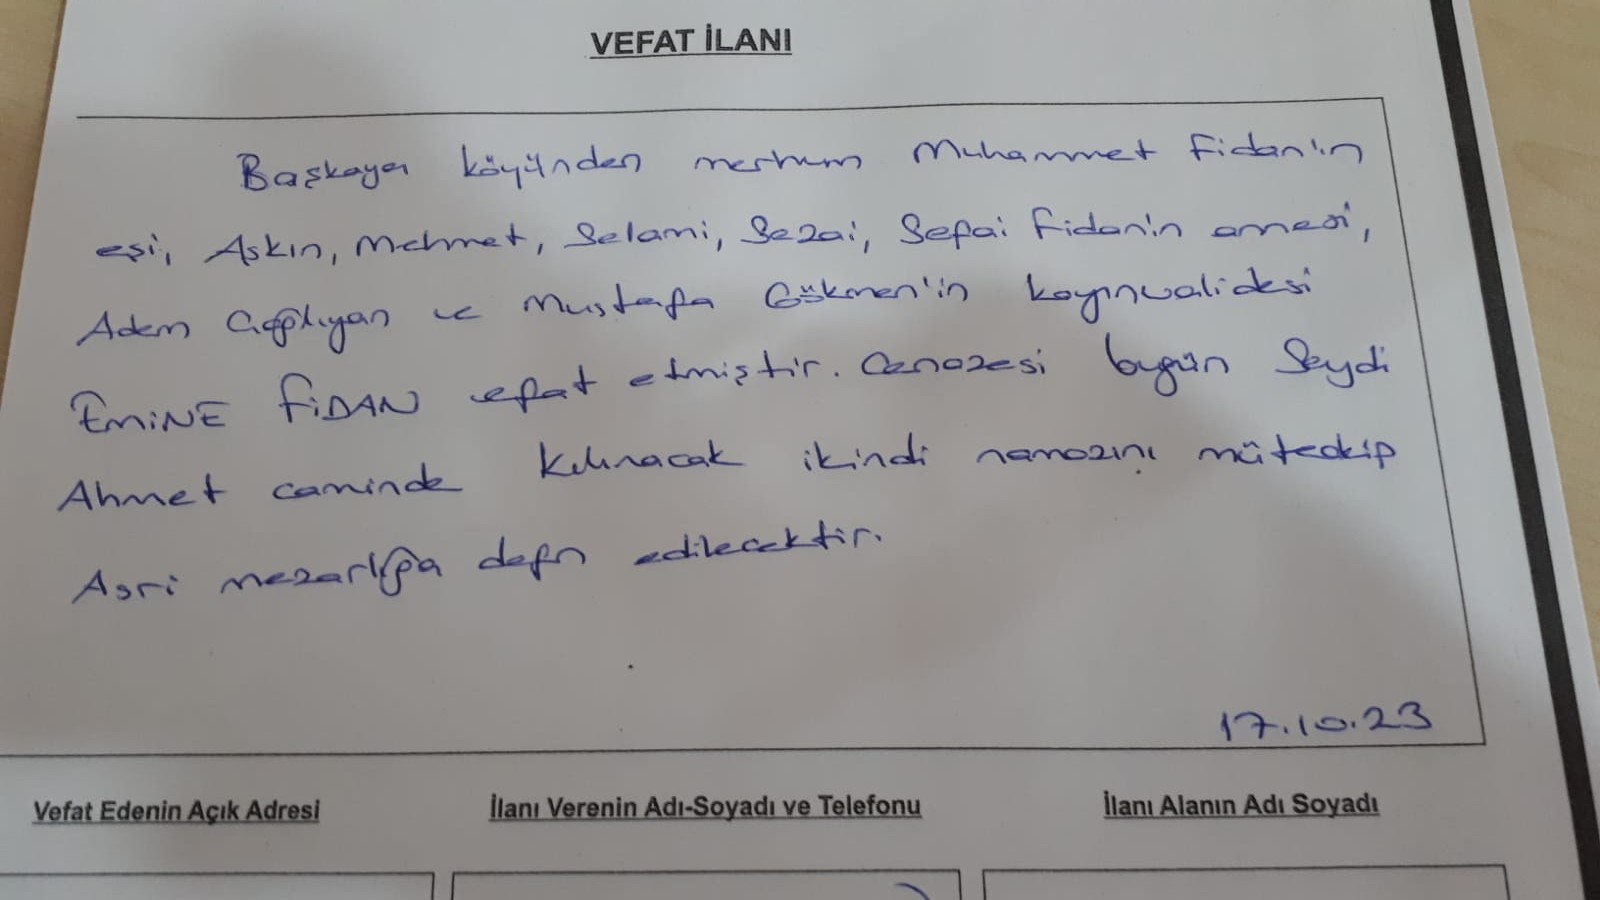 VEFAT İLANI
Başkaya köyünden merhum Muhammet Fidan'ın
eşi, Aşkın, Mehmet, Selami, Sezai, Sefai Fidan'in annesi,
Adem Cağlıyan ve Mustafa Gökmen'in kayınvalidesi
EMİNE FİDAN vefat etmiştir. Cenazesi bugün Seydi
Ahmet caminde kılınacak ikindi namazını müteakip
Asri mezarlığa defn edilecektir.
17.10.23
Vefat Edenin Açık Adresi İlanı Verenin Adı-Soyadı ve Telefonu İlanı Alanın Adı Soyadı